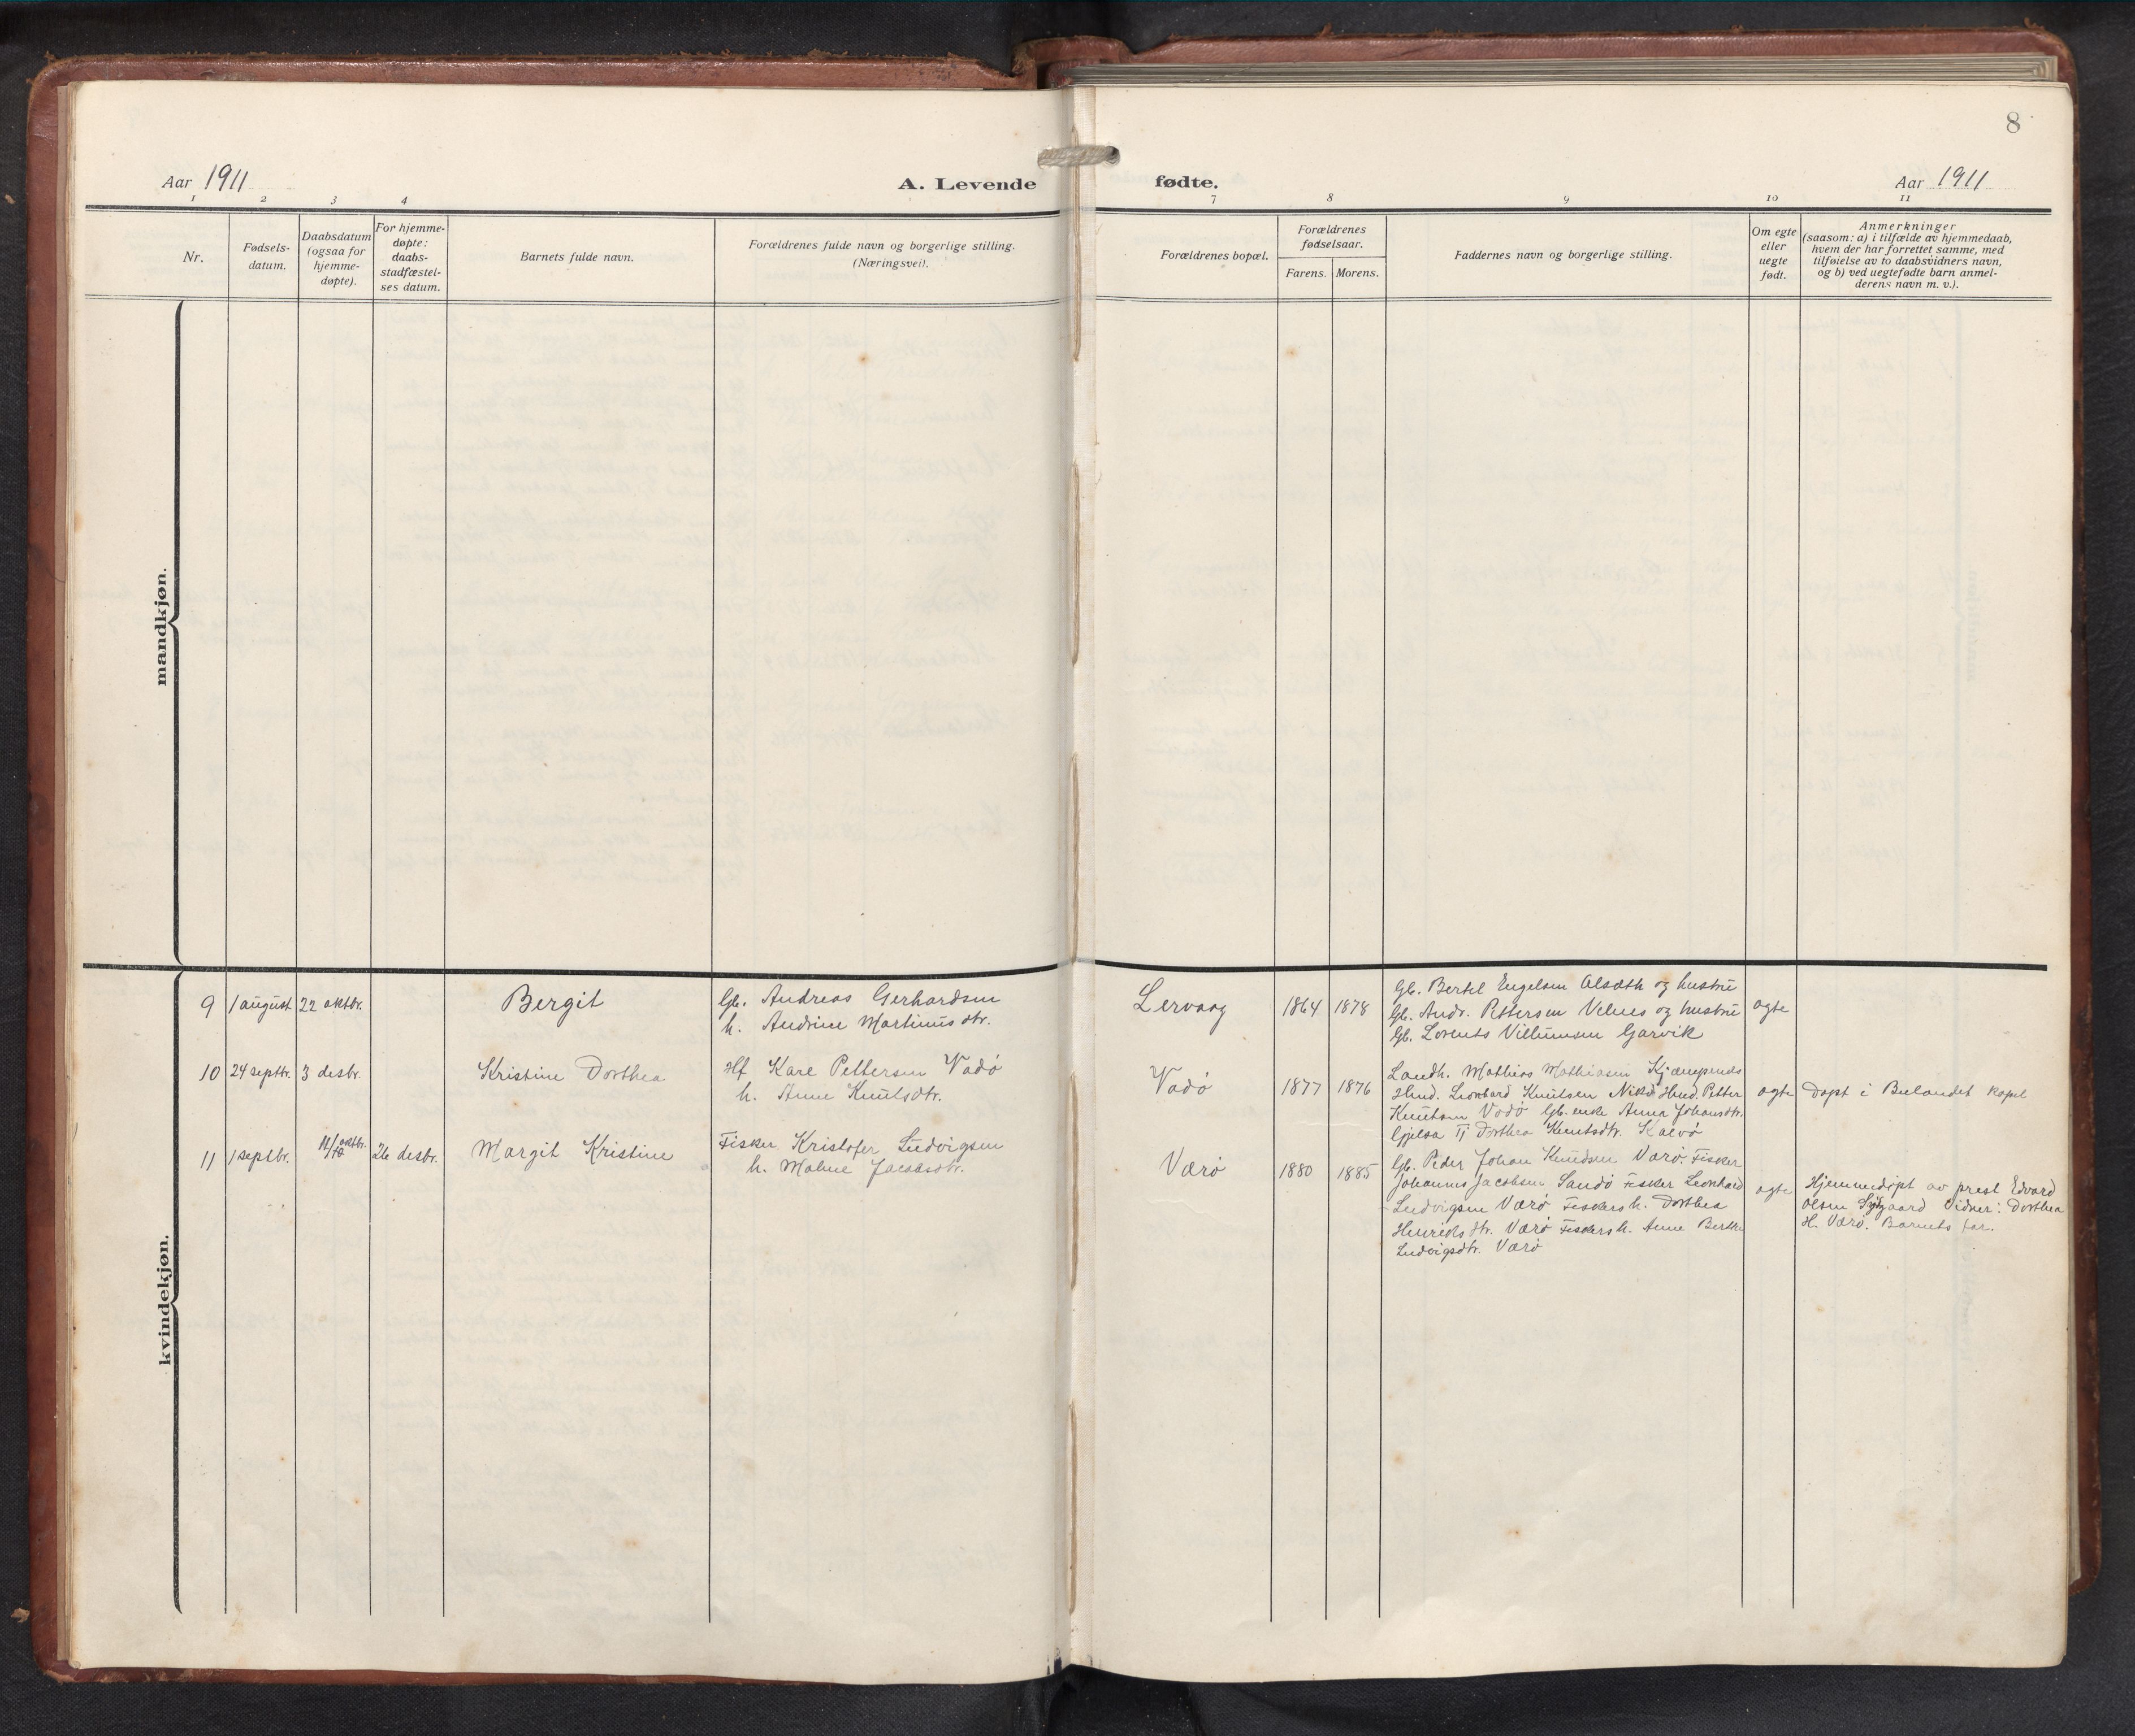 8
Aar 1911
A. Levende fødte.
Aar 1911
1 2 3 4 7 8 9 10 11
Nr.
Fødsels-
datum.
Daabsdatum
(ogsaa for
hjemme-
døpte).
For hjemme-
døpte:
daabs-
stadfæstel-
ses datum.
Barnets fulde navn.
Forældrenes fulde navn og borgerlige stilling.
(Næringsvei).
Forældrenes bopæl.
Forældrenes
fødselsaar.
Farens. Morens.
Faddernes navn og borgerlige stilling.
Om egte
eller
uegte
født.
Anmerkninger
(saasom: a) i tilfælde av hjemmedaab,
hvem der har forrettet samme, med
tilføielse av to daabsvidners navn,
og b) ved uegtefødte barn anmel-
derens navn m. v.).
mandkjøn.
kvindekjøn.
9 1 august 22 oktbr. Bergit
Gb. Andreas Gerhardsen
h. Andrine Martinusdtr.
Lervaag 1864 1878
Gb. Bertel Engelsen Alsæth og hustru
Gb. Andr. Pettersen Velnes og hustru
Gb. Lorents Villumsen Garvik
ægte
10 24 septbr. 3 desbr. Kristine Dorthea
Hf Kare Pettersen Vadø
h. Anne Knutsdtr.
Vadø 1877 1876
Landh. Mathias Mathiasen
Hmd. Leonhard Knutsen Hmd. Petter
Knutsen Vadø Gb. enke Anna Johansdtr.
Gjelsa Tj Dorthea Knutsdtr. Kalvø
ægte
Døpt i Bulandet kapel
11 1 septbr. 11/10 oktbr. 26 desbr. Margit Kristine
Fisker Kristofer Ludvigsen
h. Maline Jacobsdtr.
Værø 1880 1885
Gb. Peder Johan Knudsen Værø. Fisker
Johannes Jacobsen Sandø Fisker Leonhard
Ludvigsen Værø Fiskersh. Dorthea
Henriksdtr. Værø Fiskersh. Anne Berthe
Ludvigsdtr. Værø
ægte
Hjemmedøpt av prest Edvard
Olsen Vidner: Dorthea
H. Værø. Barnets far.